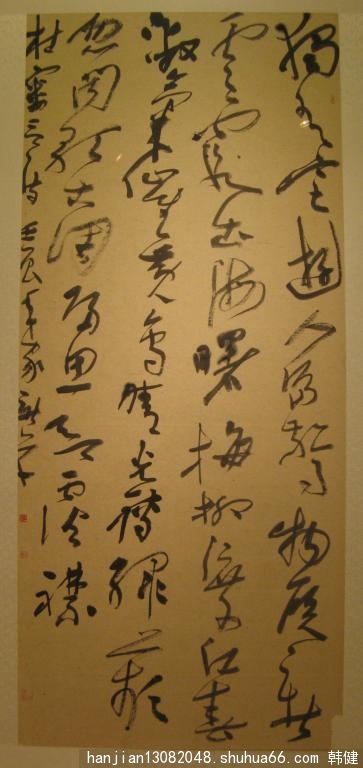 獨有宦遊人偏驚物候新
雲霞出海曙梅柳渡江春
淑氣催黃鳥晴光轉綠蘋
忽聞歌古調歸思欲沾襟
杜審言詩
hanjian13082048.shuhua66.com 韩健